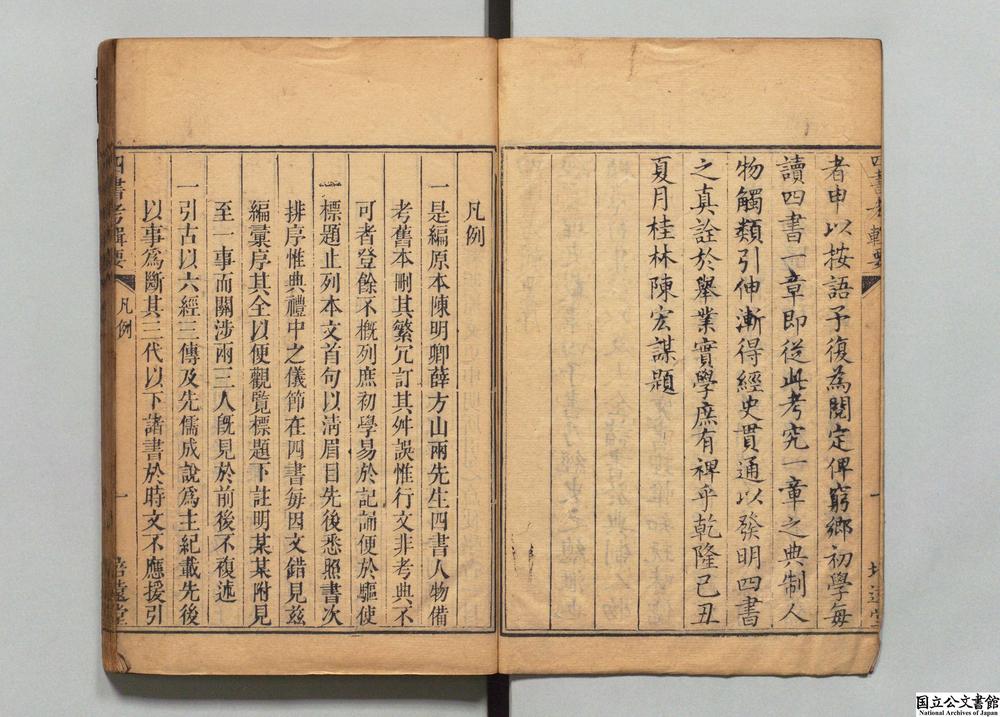 者申以按語予復為閱定俾窮鄉初學每
讀四書一章即從此考究一章之典制人
物觸類引伸漸得經史貫通以發明四書
之真詮於舉業實學庶有裨乎乾隆己丑
夏月桂林陳宏謀題
凡例
一是編原本陳明卿薛方山兩先生四書人物備
考舊本刪其繁冗訂其舛誤惟行文非考典不
可者登餘不概列庶初學易於記誦便於驅使
一標題止列本文首句以清眉目先後悉照書次
排序惟典禮中之儀節在四書每因文錯見茲
編彙序其全以便觀覽標題下註明某某附見
至一事而關涉兩三人既見於前後不複述
一引古以六經三傳及先儒成說爲主紀載先後
以事爲斷其三代以下諸書於時文不應援引
四書考輯要
凡例
一
培遠堂
国立公文書館
National Archives of Japan